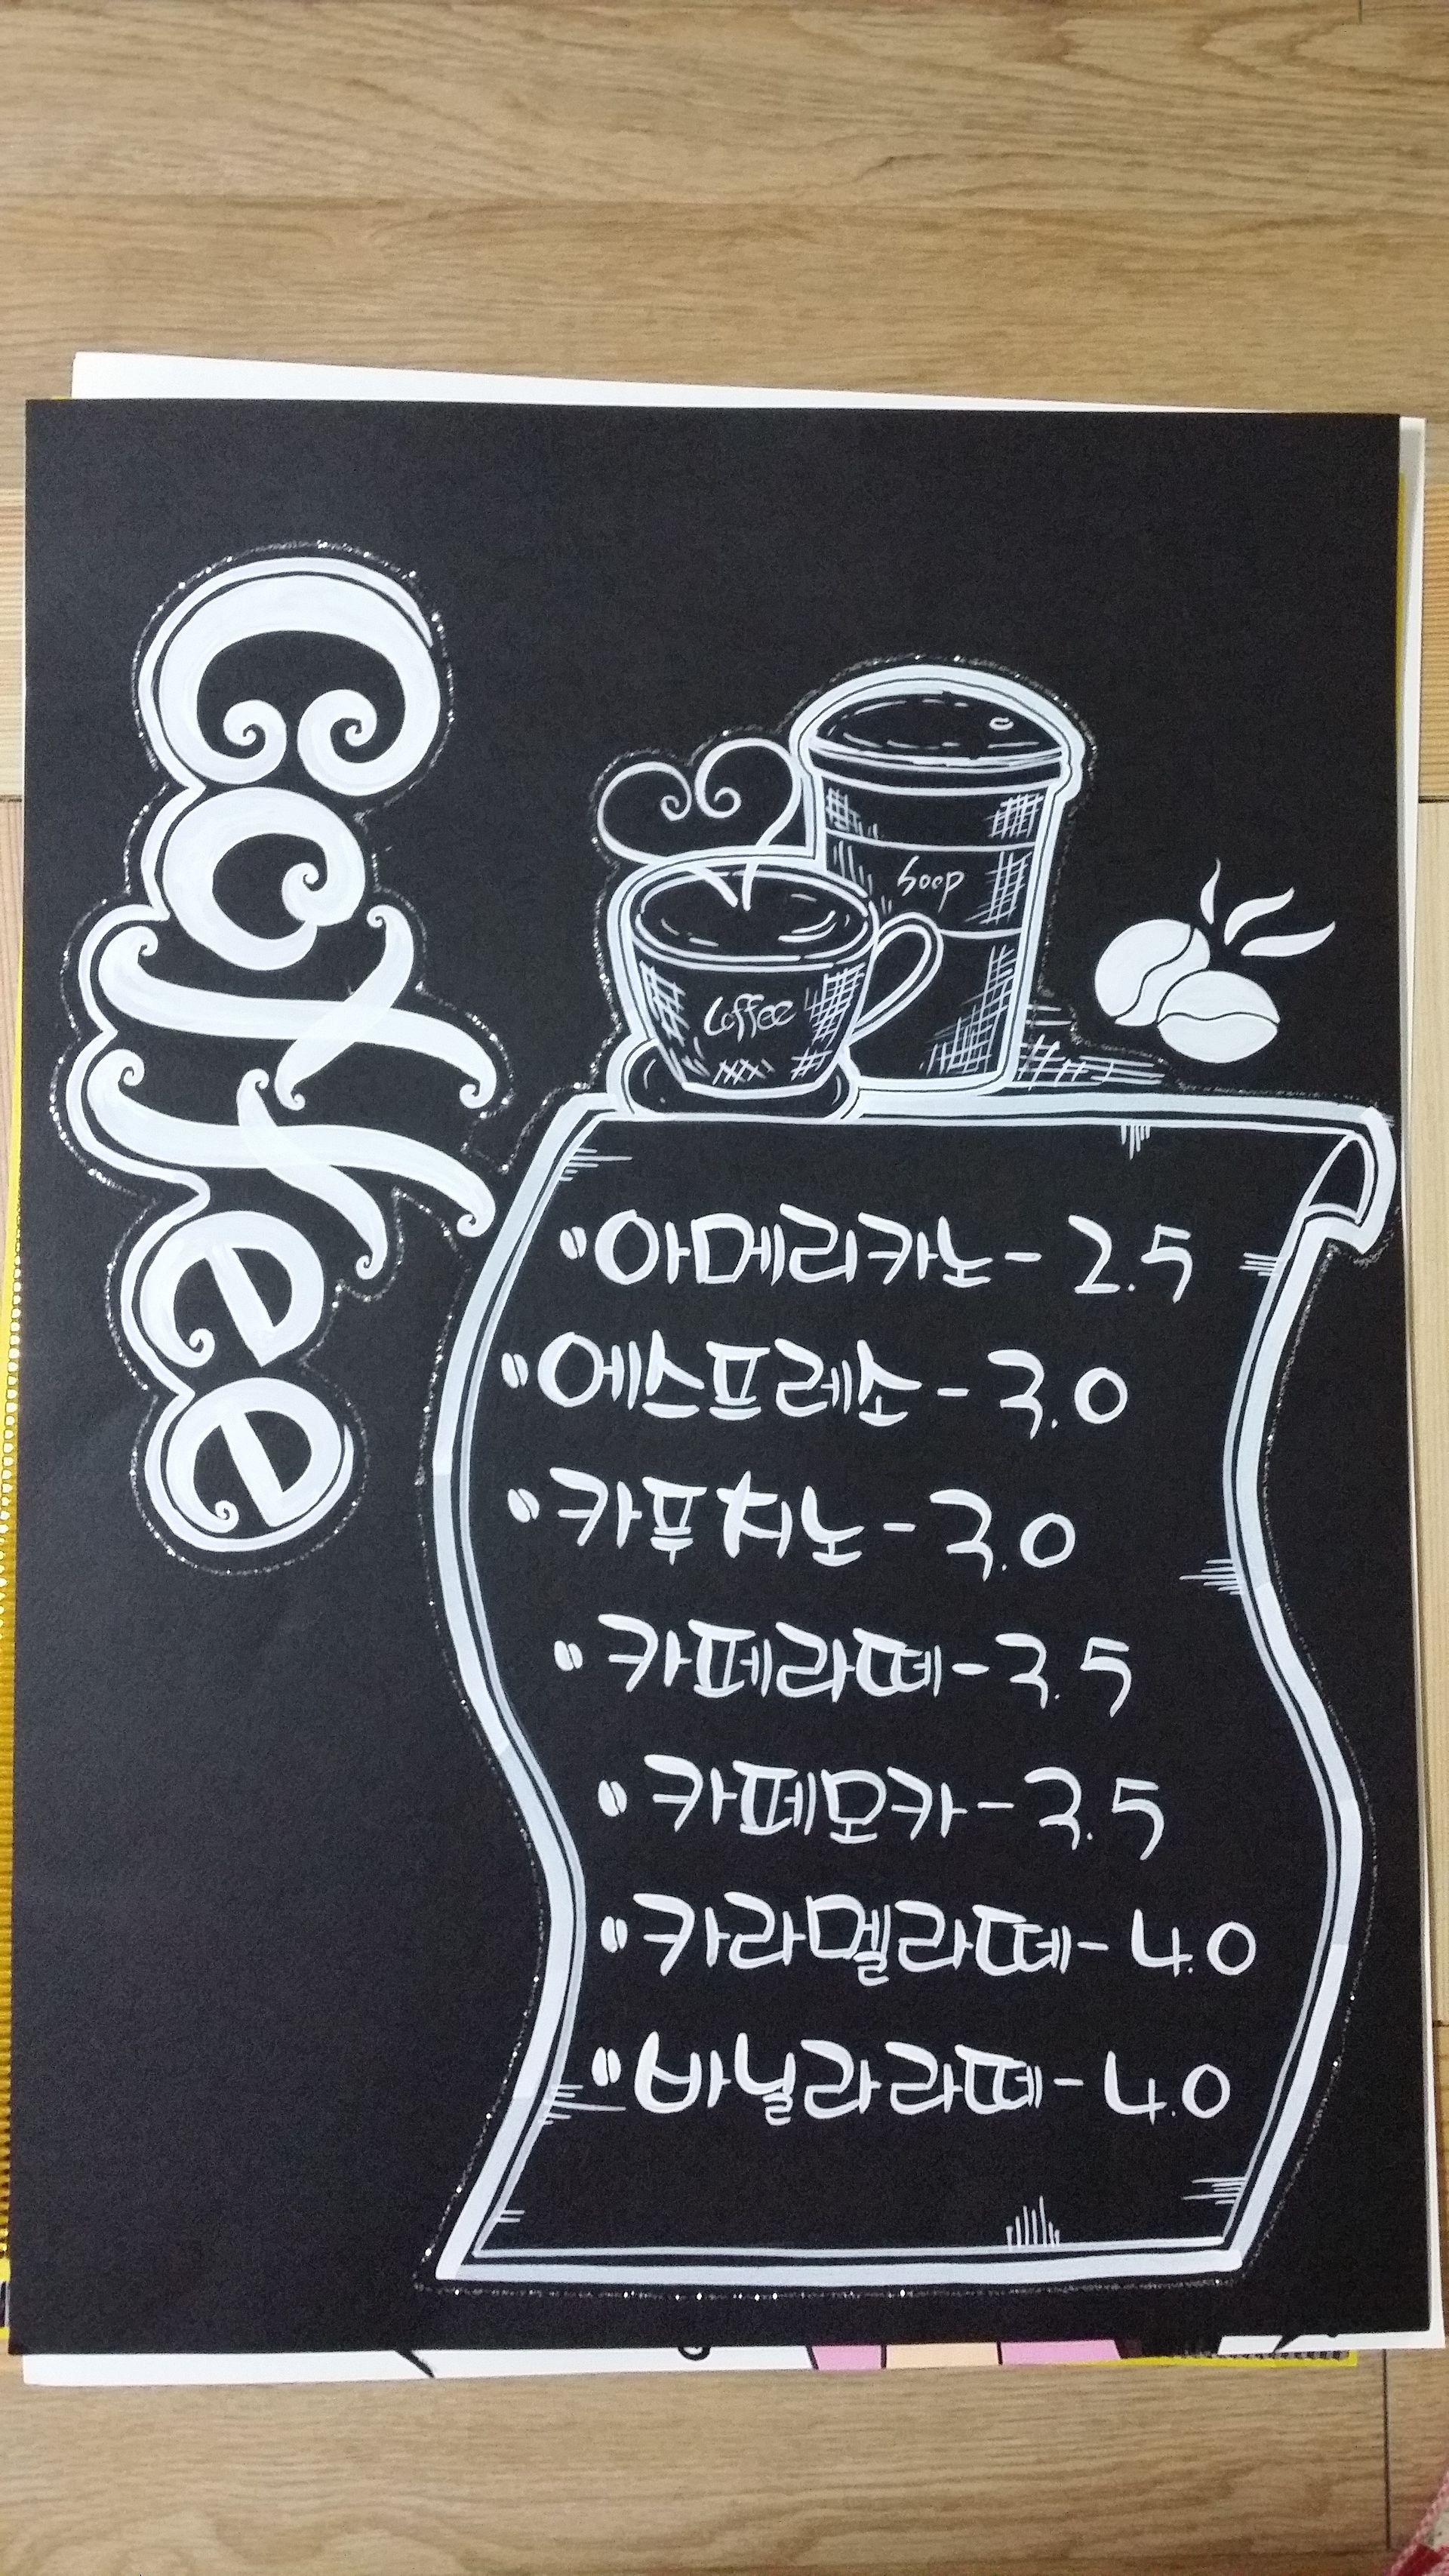 Coffee
Soop
Coffee
아메리카노 - 2.5
에스프레소 - 3.0
카푸치노 - 3.0
카페라떼 - 3.5
카페모카 - 3.5
카라멜라떼 - 4.0
바닐라라떼 - 4.0